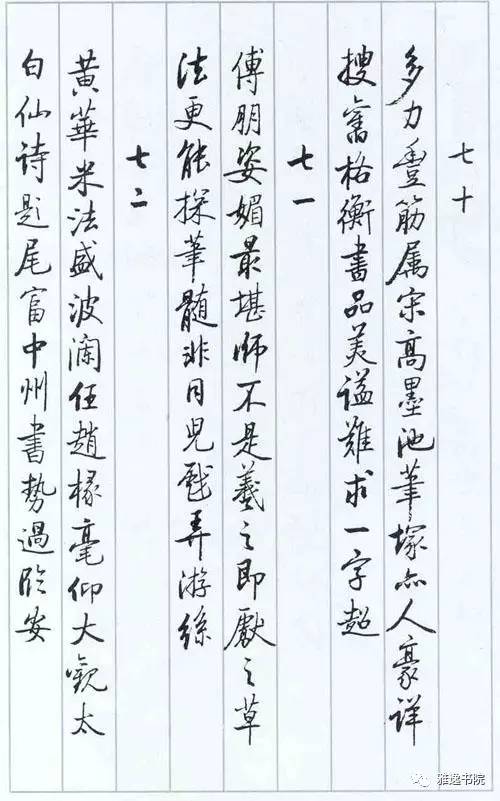 七十
多力豐筋属宋高墨池筆塚亦人豪详
搜舊格衡書品美谥難求一字超
七一
傅朋姿媚最堪师不是羲之即獻之草
法更能探筆髓非同児戲弄游絲
七二
黄華米法盛波澜任趙椽毫仰大觀太
白仙诗题尾富中州書势過临安
雅逸书院